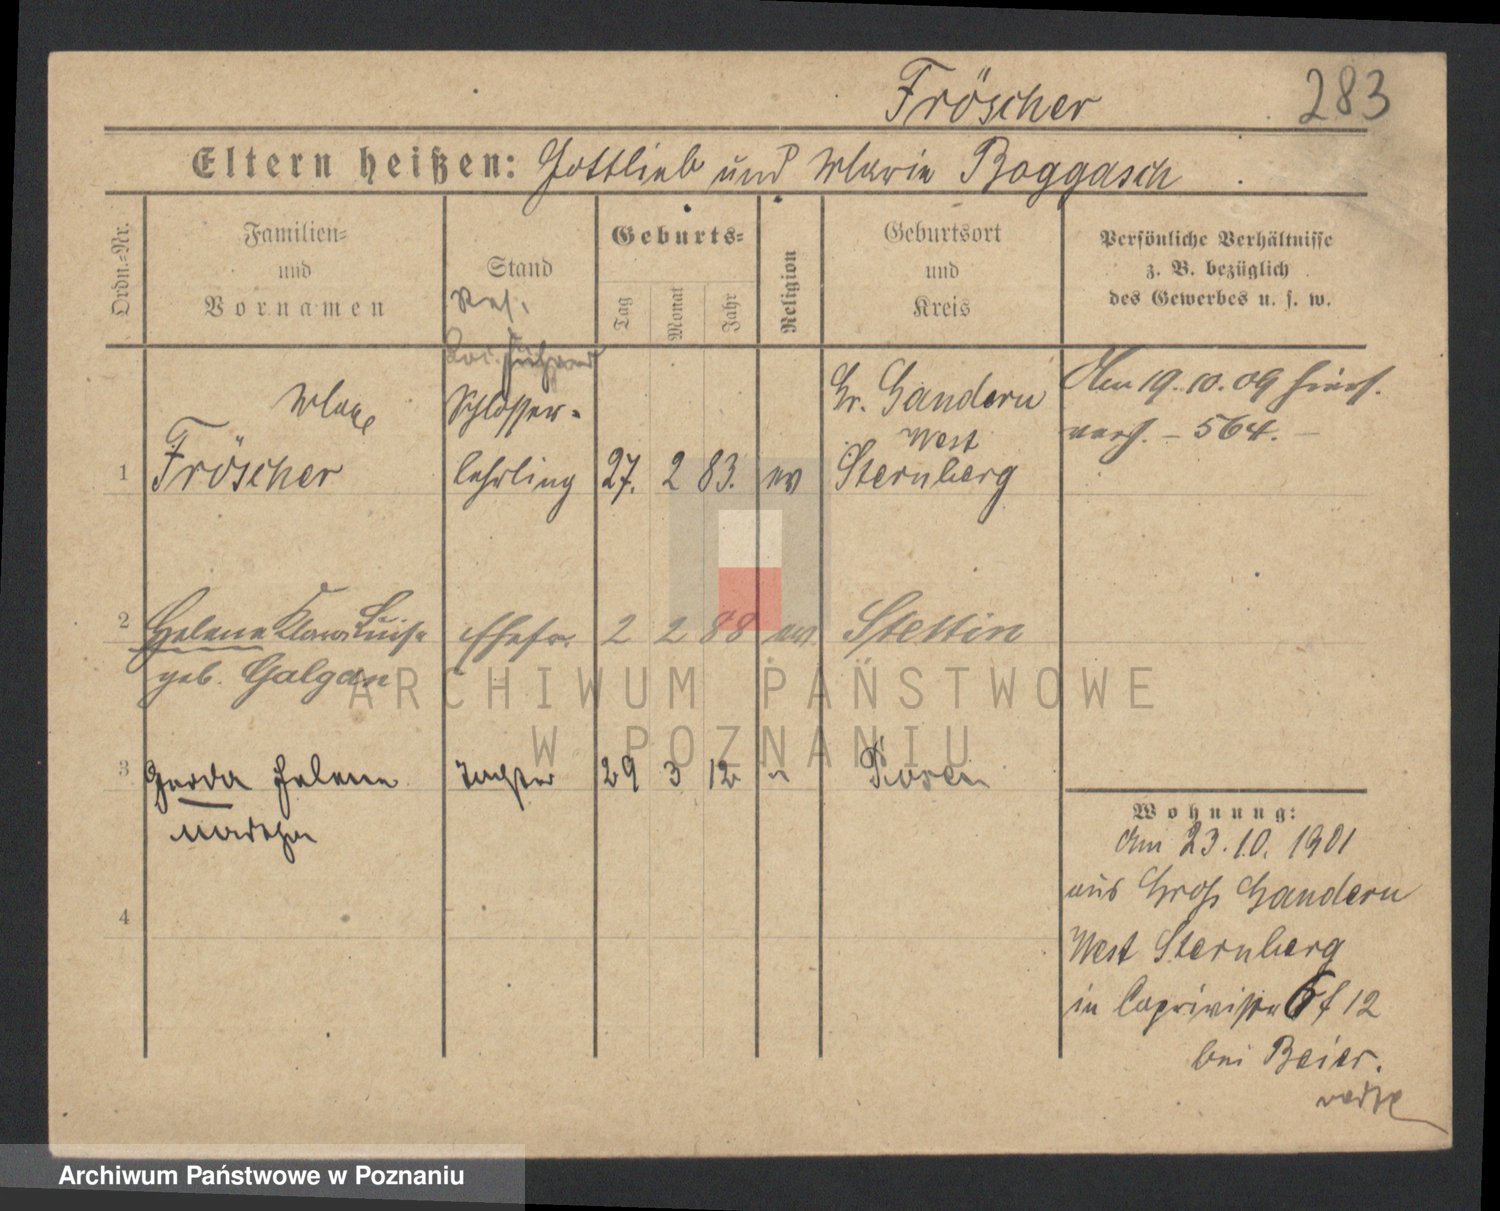 Fröscher 283
Eltern heißen: Gottlieb und Marie Boggasch
Ordn.-Nr.
Familien-
und
Vornamen
Stand
Geburts-
Tag
Monat
Jahr
Religion
Geburtsort
und
Kreis
Persönliche Verhältnisse
z. B. bezüglich
des Gewerbes u. s. w.
Res.
Lok. führer
1
Max
Fröscher
Schlosser-
lehrling
27. 2 83. ev
Gr. Gandern
West
Sternberg
Am 19. 10. 09 hiers.
verh. - 564. -
2
Helene Klara Luise
geb. Galgan
Ehefr. 2 2 88 ev. Stettin
3
Gerda Helene
Tochter 29 3 12 " Posen
4
Wohnung:
Am 23. 10. 1901
aus Groß Gandern
West Sternberg
in Caprivistr 12
bei Beier.
ARCHIWUM PAŃSTWOWE
W POZNANIU
Archiwum Państwowe w Poznaniu